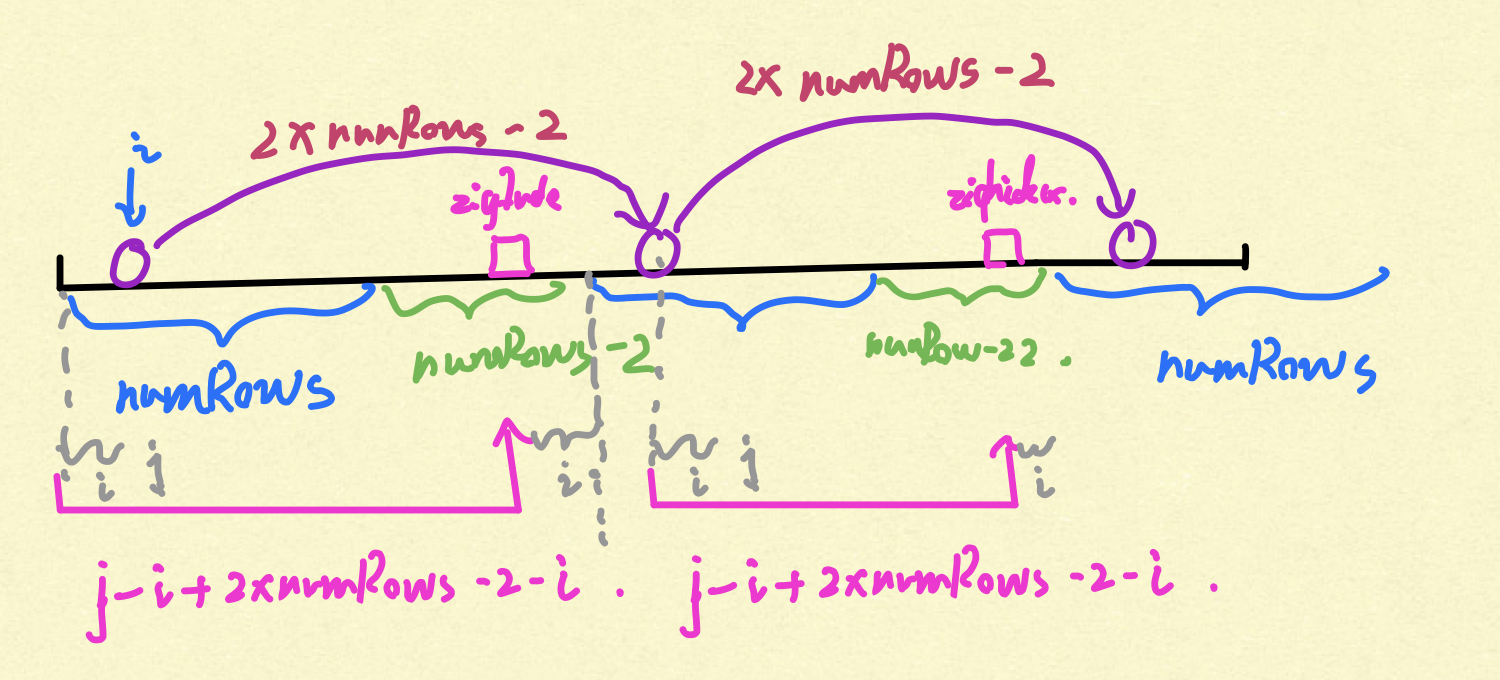 2x numRows - 2
2x numRows - 2
i
numRows
numRows - 2
numRow-22.
numRows
i j
i
i j
i
j - i + 2xnumRows - 2 - i .
j - i + 2xnumRows - 2 - i .